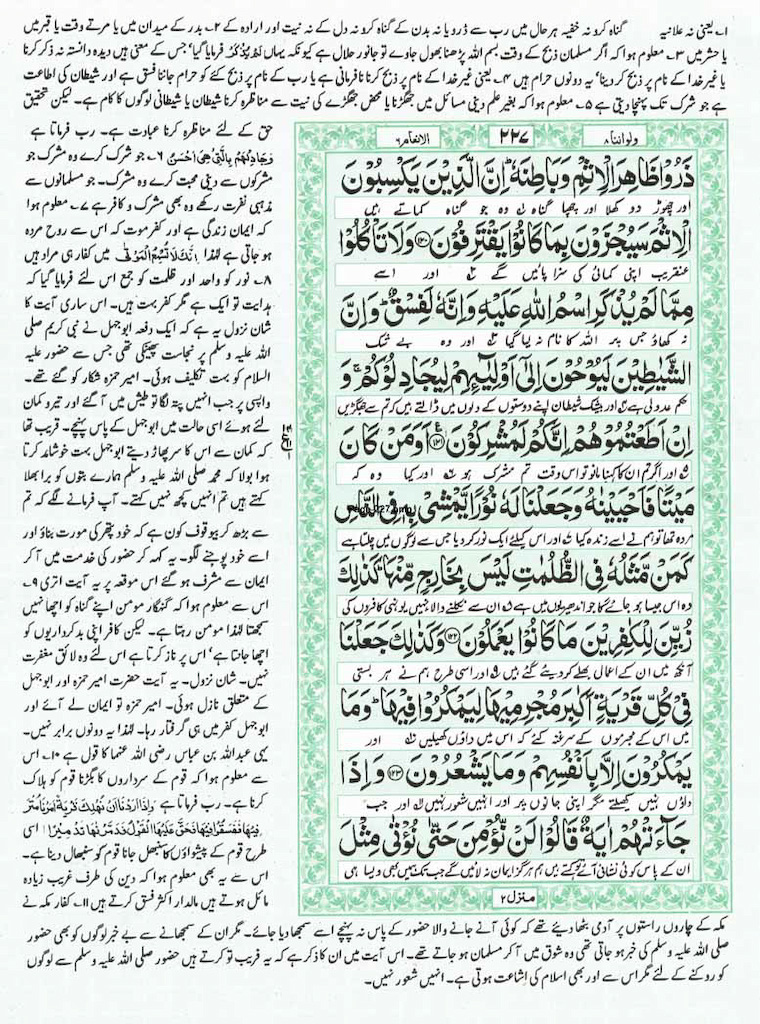 ۱۔ یعنی نہ علانیہ گناہ کرو نہ خفیہ ہر حال میں رب سے ڈرو یا نہ بدن کے گناہ کرو نہ دل کے نہ نیت اور ارادہ کے ۲۔ بدر کے میدان میں یا مرتے وقت یا قبر میں
یا حشر میں ۳۔ معلوم ہوا کہ اگر مسلمان ذبح کے وقت بسم اللہ پڑھنا بھول جاوے تو جانور حلال ہے کیونکہ یہاں لَمْ یُذْکَرْ فرمایا گیا، جس کے معنی ہیں دیدہ دانستہ نہ ذکر کرنا
یا غیر خدا کے نام پر ذبح کر دینا، یہ دونوں حرام ہیں ۴۔ یعنی غیر خدا کے نام پر ذبح کرنا نافرمانی ہے یا رب کے نام پر ذبح کئے کو حرام جاننا فسق ہے اور شیطان کی اطاعت
ہے جو شرک تک پہنچا دیتی ہے ۵۔ معلوم ہوا کہ بغیر علم دینی مسائل میں جھگڑنا یا محض جھگڑے کی نیت سے مناظرہ کرنا شیطان یا شیطانی لوگوں کا کام ہے۔ لیکن تحقیق
حق کے لئے مناظرہ کرنا عبادت ہے۔ رب فرماتا ہے
وَجَادِلْهُمْ بِالَّتِیْ هِیَ اَحْسَنُ ۶۔ جو شرک کرے وہ مشرک جو
مشرکوں سے دینی محبت کرے وہ مشرک۔ جو مسلمانوں سے
مذہبی نفرت رکھے وہ بھی مشرک و کافر ہے ۷۔ معلوم ہوا
کہ ایمان زندگی ہے اور کفر موت کہ اس سے روح مردہ
ہو جاتی ہے لہٰذا اِنَّكَ لَا تُسْمِعُ الْمَوْتٰی میں کفار ہی مراد ہیں
۸۔ نور کو واحد اور ظلمت کو جمع اس لئے فرمایا گیا کہ
ہدایت تو ایک ہے مگر کفر بہت ہیں۔ اس ساری آیت کا
شان نزول یہ ہے کہ ایک دفعہ ابوجہل نے نبی کریم صلی
اللہ علیہ وسلم پر نجاست پھینکی تھی جس سے حضور علیہ
السلام کو بہت تکلیف ہوئی۔ امیر حمزہ شکار کو گئے تھے۔
واپسی پر جب انہیں پتہ لگا تو طیش میں آ گئے اور تیر و کمان
لئے ہوئے اسی حالت میں ابوجہل کے پاس پہنچے۔ قریب تھا
کہ کمان سے اس کا سر پھاڑ دیتے ابوجہل بہت خوشامد کرتا
ہوا بولا کہ محمد صلی اللہ علیہ وسلم ہمارے بتوں کو برا بھلا
کہتے ہیں تم انہیں کچھ نہیں کہتے۔ آپ فرمانے لگے کہ تم
سے بڑھ کر بیوقوف کون ہے کہ خود پتھر کی مورت بناؤ اور
اسے خود پوجنے لگو۔ یہ کہہ کر حضور کی خدمت میں آ کر
ایمان سے مشرف ہو گئے اس موقعہ پر یہ آیت اتری ۹۔
اس سے معلوم ہوا کہ گنہگار مومن اپنے گناہ کو اچھا نہیں
سمجھتا لہٰذا مومن رہتا ہے۔ لیکن کافر اپنی بدکرداریوں کو
اچھا جانتا ہے، اس پر ناز کرتا ہے اس لئے وہ لائق مغفرت
نہیں۔ شان نزول۔ یہ آیت حضرت امیر حمزہ اور ابوجہل
کے متعلق نازل ہوئی۔ امیر حمزہ تو ایمان لے آئے اور
ابوجہل کفر میں ہی گرفتار رہا۔ لہٰذا یہ دونوں برابر نہیں۔
یہی عبداللہ بن عباس رضی اللہ عنہما کا قول ہے ۱۰۔ اس
سے معلوم ہوا کہ قوم کے سرداروں کا بگڑنا قوم کو ہلاک
کرتا ہے۔ رب فرماتا ہے وَاِذَا اَرَدْنَا اَنْ نُّهْلِكَ قَرْیَةً اَمَرْنَا مُتْرَ
فِیْهَا فَفَسَقُوْا فِیْهَا فَحَقَّ عَلَیْهَا الْقَوْلُ فَدَمَّرْنٰهَا تَدْمِیْرًا اسی
طرح قوم کے پیشواؤں کا سنبھل جانا قوم کو سنبھال دینا ہے۔
اس سے یہ بھی معلوم ہوا کہ دین کی طرف غریب زیادہ
مائل ہوتے ہیں مالدار اکثر فسق کرتے ہیں ۱۱۔ کفار مکہ نے
ولو اننا ۸
۲۲۷
الانعام ۶
ذَرُوْا ظَاهِرَ الْاِثْمِ وَبَاطِنَهٗ ؕ اِنَّ الَّذِیْنَ یَكْسِبُوْنَ
اور چھوڑ دو کھلا اور چھپا گناہ وہ جو گناہ کماتے ہیں
الْاِثْمَ سَیُجْزَوْنَ بِمَا كَانُوْا یَقْتَرِفُوْنَ ﴿۱۲۰﴾ وَلَا تَاْكُلُوْا
عنقریب اپنی کمائی کی سزا پائیں گے اور اسے
مِمَّا لَمْ یُذْكَرِ اسْمُ اللّٰهِ عَلَیْهِ وَاِنَّهٗ لَفِسْقٌ ؕ وَاِنَّ
نہ کھاؤ جس پر اللہ کا نام نہ لیا گیا اور وہ بے شک
الشَّیٰطِیْنَ لَیُوْحُوْنَ اِلٰۤی اَوْلِیٰٓـِٕهِمْ لِیُجَادِلُوْكُمْ ۚ وَ
حکم عدولی ہے اور بیشک شیطان اپنے دوستوں کے دلوں میں ڈالتے ہیں کہ تم سے جھگڑیں
اِنْ اَطَعْتُمُوْهُمْ اِنَّكُمْ لَمُشْرِكُوْنَ ﴿۱۲۱﴾ اَوَمَنْ كَانَ
اور اگر تم ان کا کہنا مانو تو اس وقت تم مشرک ہو اور کیا وہ کہ
مَیْتًا فَاَحْیَیْنٰهُ وَجَعَلْنَا لَهٗ نُوْرًا یَّمْشِیْ بِهٖ فِی النَّاسِ
مردہ تھا تو ہم نے اسے زندہ کیا اور اس کیلئے ایک نور کر دیا جس سے لوگوں میں چلتا ہے
كَمَنْ مَّثَلُهٗ فِی الظُّلُمٰتِ لَیْسَ بِخَارِجٍ مِّنْهَا ؕ كَذٰلِكَ
وہ اس جیسا ہو جائے گا جو اندھیریوں میں ہے ان سے نکلنے والا نہیں یونہی کافروں کی
زُیِّنَ لِلْكٰفِرِیْنَ مَا كَانُوْا یَعْمَلُوْنَ ﴿۱۲۲﴾ وَكَذٰلِكَ جَعَلْنَا
آنکھ میں ان کے اعمال بھلے کر دیئے گئے ہیں اور اسی طرح ہم نے ہر بستی
فِیْ كُلِّ قَرْیَةٍ اَكٰبِرَ مُجْرِمِیْهَا لِیَمْكُرُوْا فِیْهَا ؕ وَمَا
میں اس کے مجرموں کے سرغنہ کئے کہ اس میں داؤں کھیلیں اور
یَمْكُرُوْنَ اِلَّا بِاَنْفُسِهِمْ وَمَا یَشْعُرُوْنَ ﴿۱۲۳﴾ وَاِذَا
داؤں نہیں کھیلتے مگر اپنی جانوں پر اور انہیں شعور نہیں اور جب
جَآءَتْهُمْ اٰیَةٌ قَالُوْا لَنْ نُّؤْمِنَ حَتّٰی نُؤْتٰی مِثْلَ
ان کے پاس کوئی نشانی آئے تو کہتے ہیں ہم ہرگز ایمان نہ لائیں گے جب تک ہمیں بھی ویسا ہی
منزل ۲
مکہ کے چاروں راستوں پر آدمی بٹھا دیئے تھے کہ کوئی آنے جانے والا حضور کے پاس نہ پہنچے اسے سمجھا دیا جائے۔ مگر ان کے سمجھانے سے بے خبر لوگوں کو بھی حضور
صلی اللہ علیہ وسلم کی خبر ہو جاتی تھی وہ شوق میں آ کر مسلمان ہو جاتے تھے۔ اس آیت میں ان کا ذکر ہے کہ یہ فریب تو کرتے ہیں حضور صلی اللہ علیہ وسلم سے لوگوں
کو روکنے کے لئے مگر اس سے اور بھی اسلام کی اشاعت ہوتی ہے۔ انہیں شعور نہیں۔